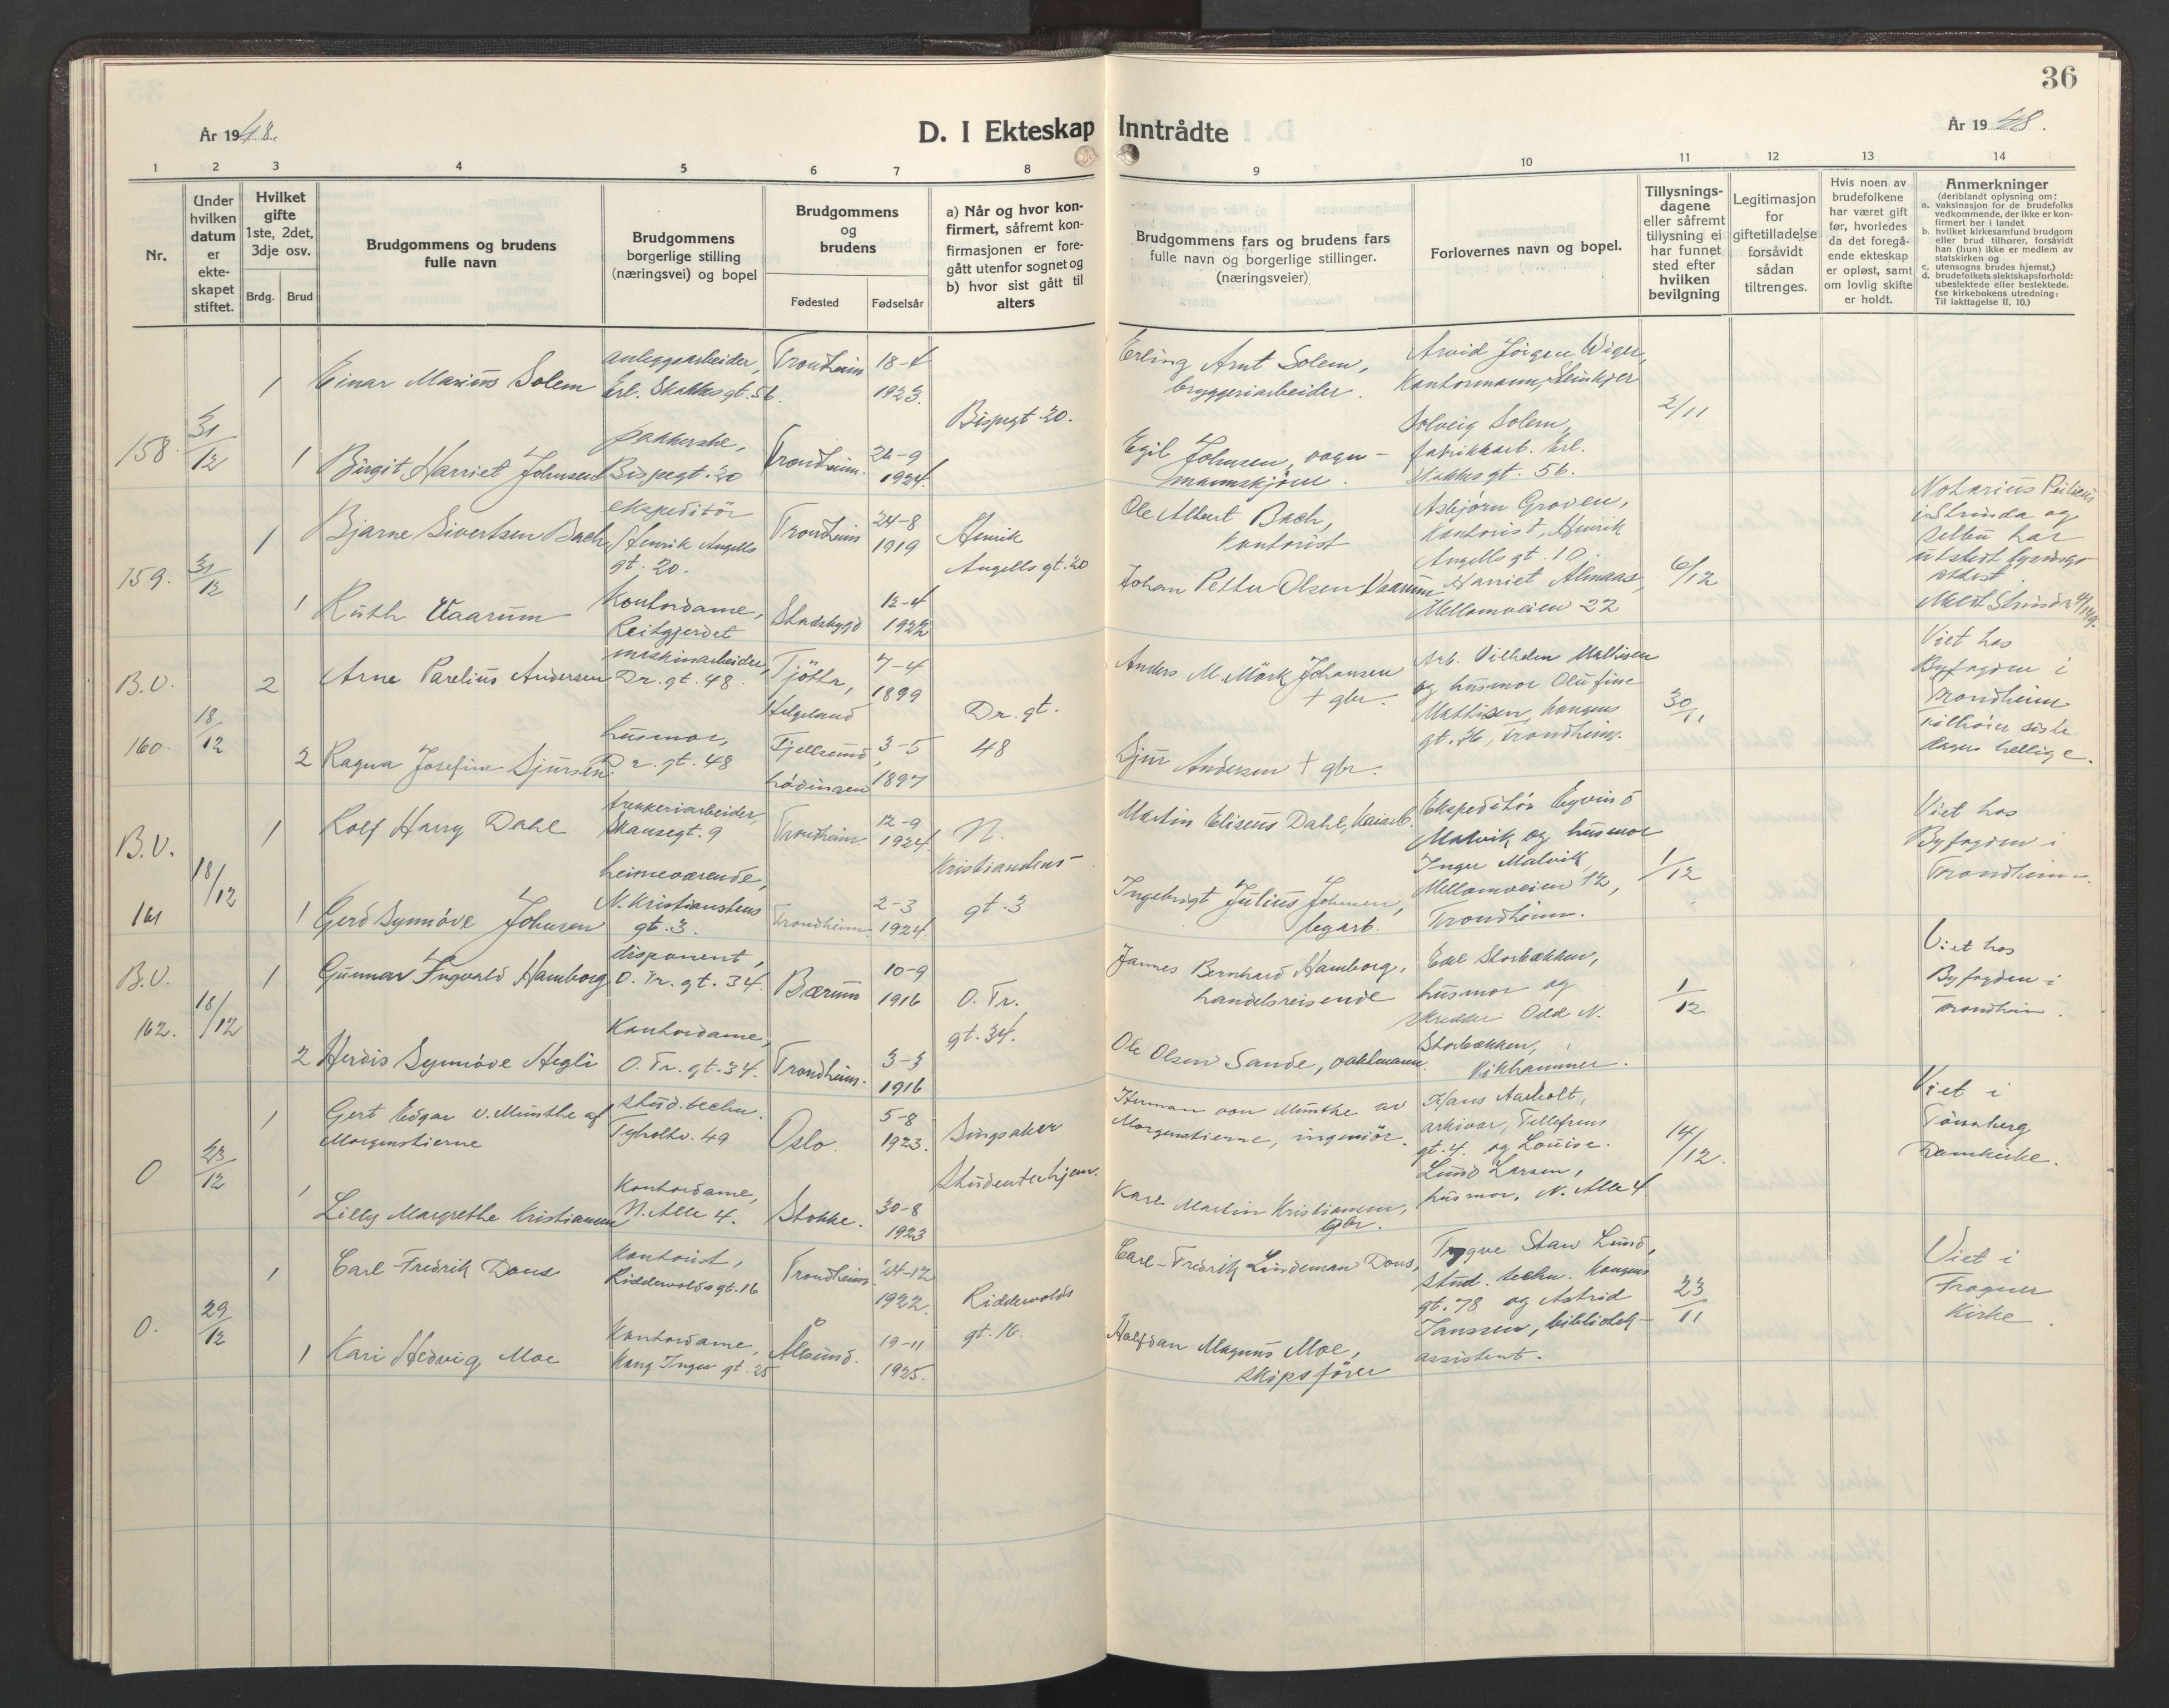 36
År 1948.
D. I Ekteskap Inntrådte
År 1948.
1 2 3 4 5 6 7 8 9 10 11 12 13 14
Nr.
Under hvilken datum er ekte-skapet stiftet.
Hvilket gifte 1ste, 2det, 3dje osv.
Brdg. Brud
Brudgommens og brudens fulle navn
Brudgommens borgerlige stilling (næringsvei) og bopel
Brudgommens og brudens
Fødested Fødselsår
a) Når og hvor kon-firmert, såfremt kon-firmasjonen er fore-gått utenfor sognet og b) hvor sist gått til alters
Brudgommens fars og brudens fars fulle navn og borgerlige stillinger. (næringsveier)
Forlovernes navn og bopel.
Tillysnings-dagene eller såfremt tillysning ei har funnet sted efter hvilken bevilgning
Legitimasjon for giftetilladelse forsåvidt sådan tiltrenges.
Hvis noen av brudefolkene har været gift før, hvorledes da det foregå-ende ekteskap er opløst, samt om lovlig skifte er holdt.
Anmerkninger
(deriblandt oplysning om:
a. vaksinasjon for de brudefolks vedkommende, der ikke er kon-firmert her i landet
b. hvilket kirkesamfund brudgom eller brud tilhører, forsåvidt han (hun) ikke er medlem av statskirken og
c. utensogns brudes hjemst.)
d. brudefolkets slektskapsforhold: ubeslektede eller beslektede.
(se kirkebokens utredning: Til iakttagelse II. 10.)
158. 31/12
1 Einar Marius Solem
anleggsarbeider, Erl. Skakkes gt. 56.
Trondheim 18-4 1923.
Bispegt. 20.
Erling Arnt Solem, bryggeriarbeider.
Arvid Jörgen Wiger, Kontormann, Steinkjer
Solveig Solem, fabrikkarb. Erl. Skakkes gt. 56.
2/11
1 Birgit Harriet Johnsen
pakkerske, Bispegt. 20
Trondheim. 1924.
Egil Johnsen, vogn-mannskjörer.
159. 31/12
1 Bjarne Sivertsen Bach
ekspeditör Henrik Angells gt. 20.
Trondheim 24-8 1919
Henrik Angells gt. 20
Ole Albert Bach, Kontorist
Asbjørn Groven, Kontorist, Henrik Angells gt. 10.
Harriet Almaas, Mellomveien 22
6/12
1 Ruth Vaarum
Kontordame, Reitgjerdet
Stadsbygd 12-4 1922
Johan Petter Olsen Vaarum
Notarius
i Strinda og Selbu har utstedt
attest.
Meldt Strinda
B.V. 160. 18/12
2 Arne Parelius Andersen
maskinarbeider, Dr. gt. 48.
Tjötta, Helgeland 7-4 1899
Dr. gt. 48
Anders M. Mörk Johansen + gbr.
Arb. Vilhelm Mathisen og husmor Olufine Mathisen, Kongens gt. 36, Trondheim.
30/11
Viet hos Byfogden i Trondheim
Tilhører siste dagers hellige.
2 Ragna Josefine Sjursen.
husmor, Dr. gt. 48
Fjellsund, Lödingen 3-5 1897
Sjur Andersen + gbr.
B.V. 161 18/12
1 Rolf Harry Dahl
trekkeriarbeider, Skansegt. 9
Trondheim. 12-9 1924.
N. Kristianstens-gt. 3
Martin Eliseus Dahl, kaiarb.
Ekspeditör Eyvind Malvik og husmor Inger Malvik, Mellomveien 12, Trondheim.
1/12
Viet hos Byfogden i Trondheim.
1 Gerd Synnöve Johnsen
heimeværende, N. Kristianstens gt. 3.
Trondheim. 2-3 1924.
Ingebrigt Julius Johnsen, legarb.
B.V. 162. 18/12
1 Gunnar Ingvald Hamborg
disponent, O. Tr. gt. 34.
Bærum 10-9 1916
O. Tr. gt. 34.
Jannes Bernhard Hamborg, handelsreisende
Edel Storbækken, husmor og skredder Odd N. Storbækken, Vikhammer.
1/12
Viet hos Byfogden i Trondheim.
2 Herdis Synnöve Hegli
Kontordame, O. Tr. gt. 34.
Trondheim. 3-3 1916
Ole Olsen Sande, vaktmann.
0 23/12
1 Gert Edgar v. Munthe af Morgenstierne
stud. techn. Tyholtv. 49
Oslo. 5-8 1923.
Singsaker Studenterhjem.
Herman von Munthe av Morgenstierne, ingeniör.
Hans Aarholt, arkivar, Tellefsens gt. 4. og Louise Lund Larsen, husmor, N. Alle 4.
14/12.
Viet i Tønsberg Domkirke.
1 Lilly Margrethe Kristiansen
Kontordame, N. Alle 4.
Stokke. 30-8 1923
Karl Martin Kristiansen, Gbr.
0. 29/12
1 Carl-Fredrik Dons
Kontorist, Riddervolds gt. 16
Trondheim. 24-12 1922.
Riddervolds gt. 16.
Carl-Fredrik Lindeman Dons,
Trygve Staw Lund, stud. techn. Kongens gt. 78 og Astrid Janssen, bibliotek-assistent.
23/11
Viet i Frogner Kirke.
1 Kari Hedvig Moe
Kontordame, Kong Inges gt. 25
Ålesund. 19-11 1925.
Halfdan Magnus Moe, skipsförer